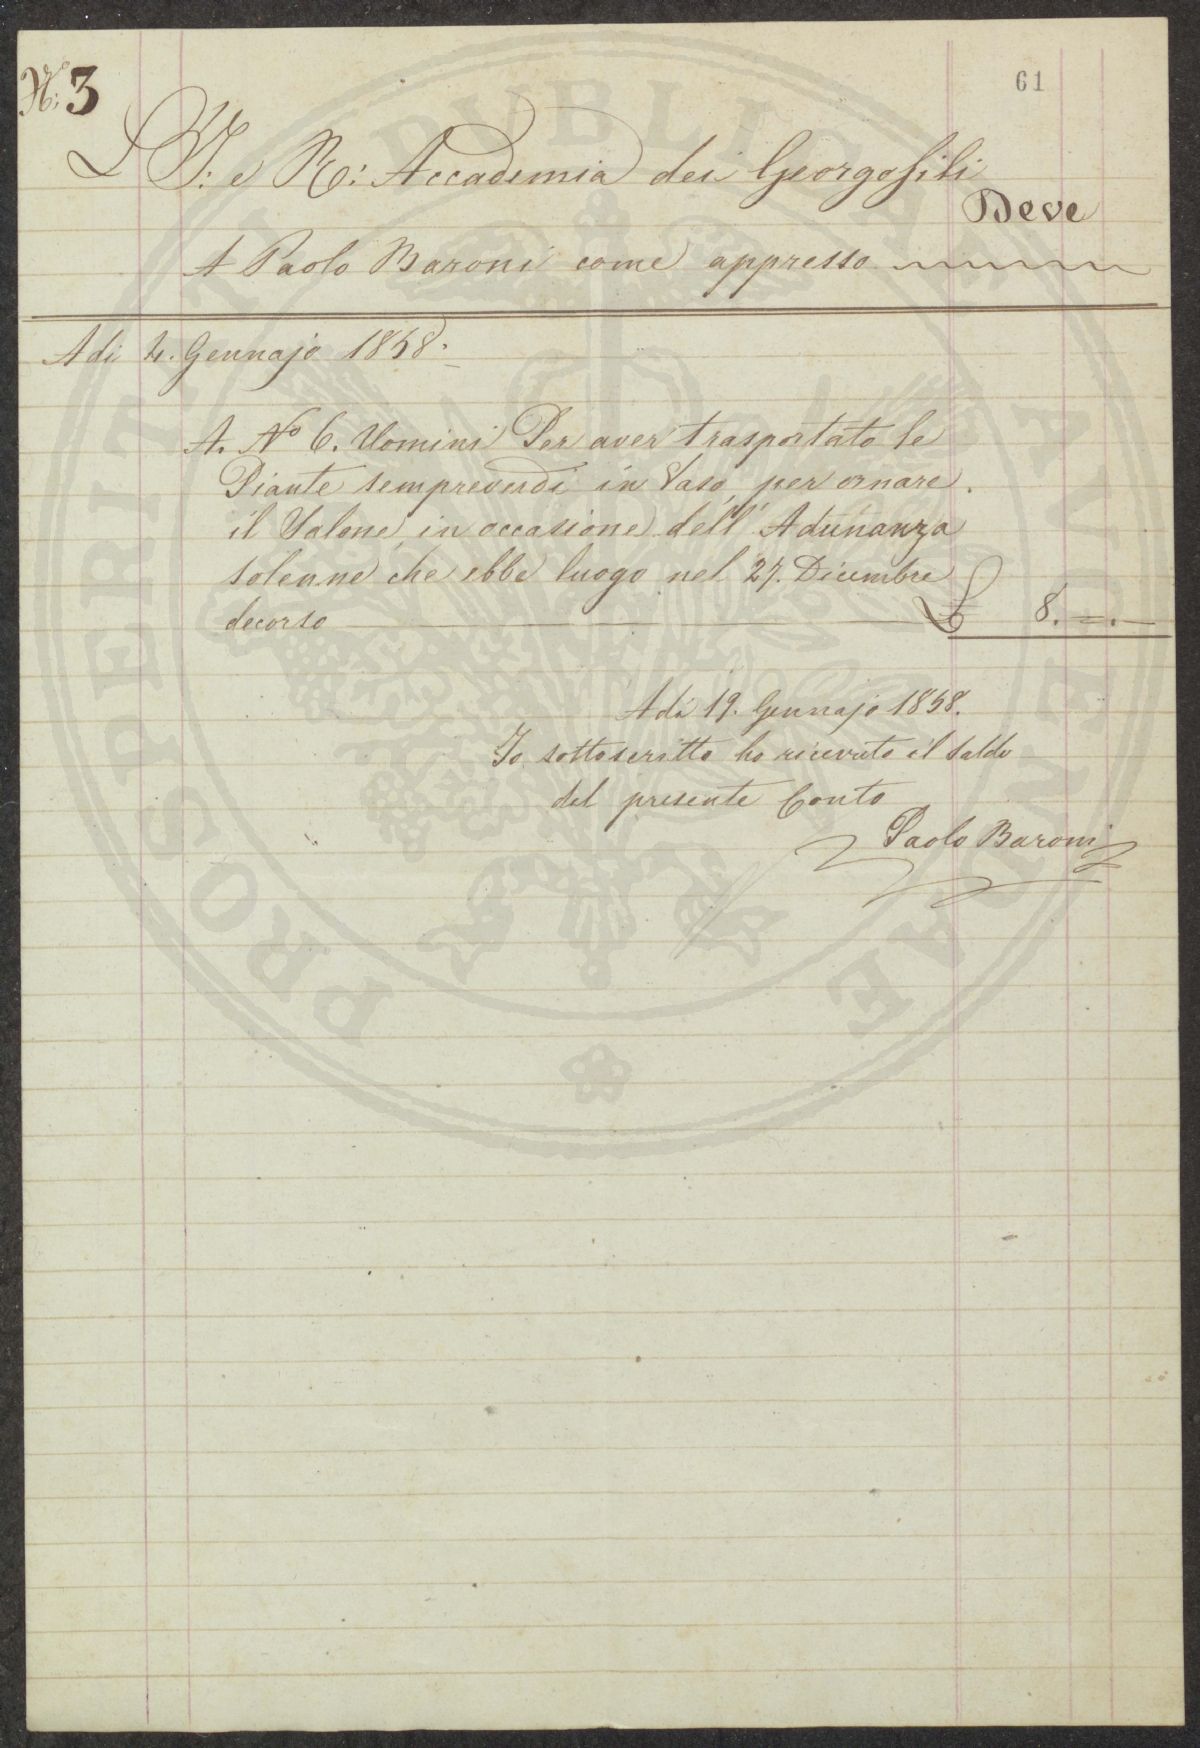 N.° 3
61
L'I: e R: Accademia dei Georgofili
Deve
A Paolo Baroni come appresso
Adi 4. Gennajo 1858.
A. N° 6. Uomini Per aver trasportato le
Piante sempreverdi in Vaso, per ornare
il Salone, in occasione dell'Adunanza
solenne che ebbe luogo nel 27. Dicembre
decorso £ 8. — . —
Adi 19. Gennajo 1858.
Io sottoscritto ho ricevuto il saldo
del presente Conto
Paolo Baroni
PROSPERITATI PUBLICAE AUGENDAE